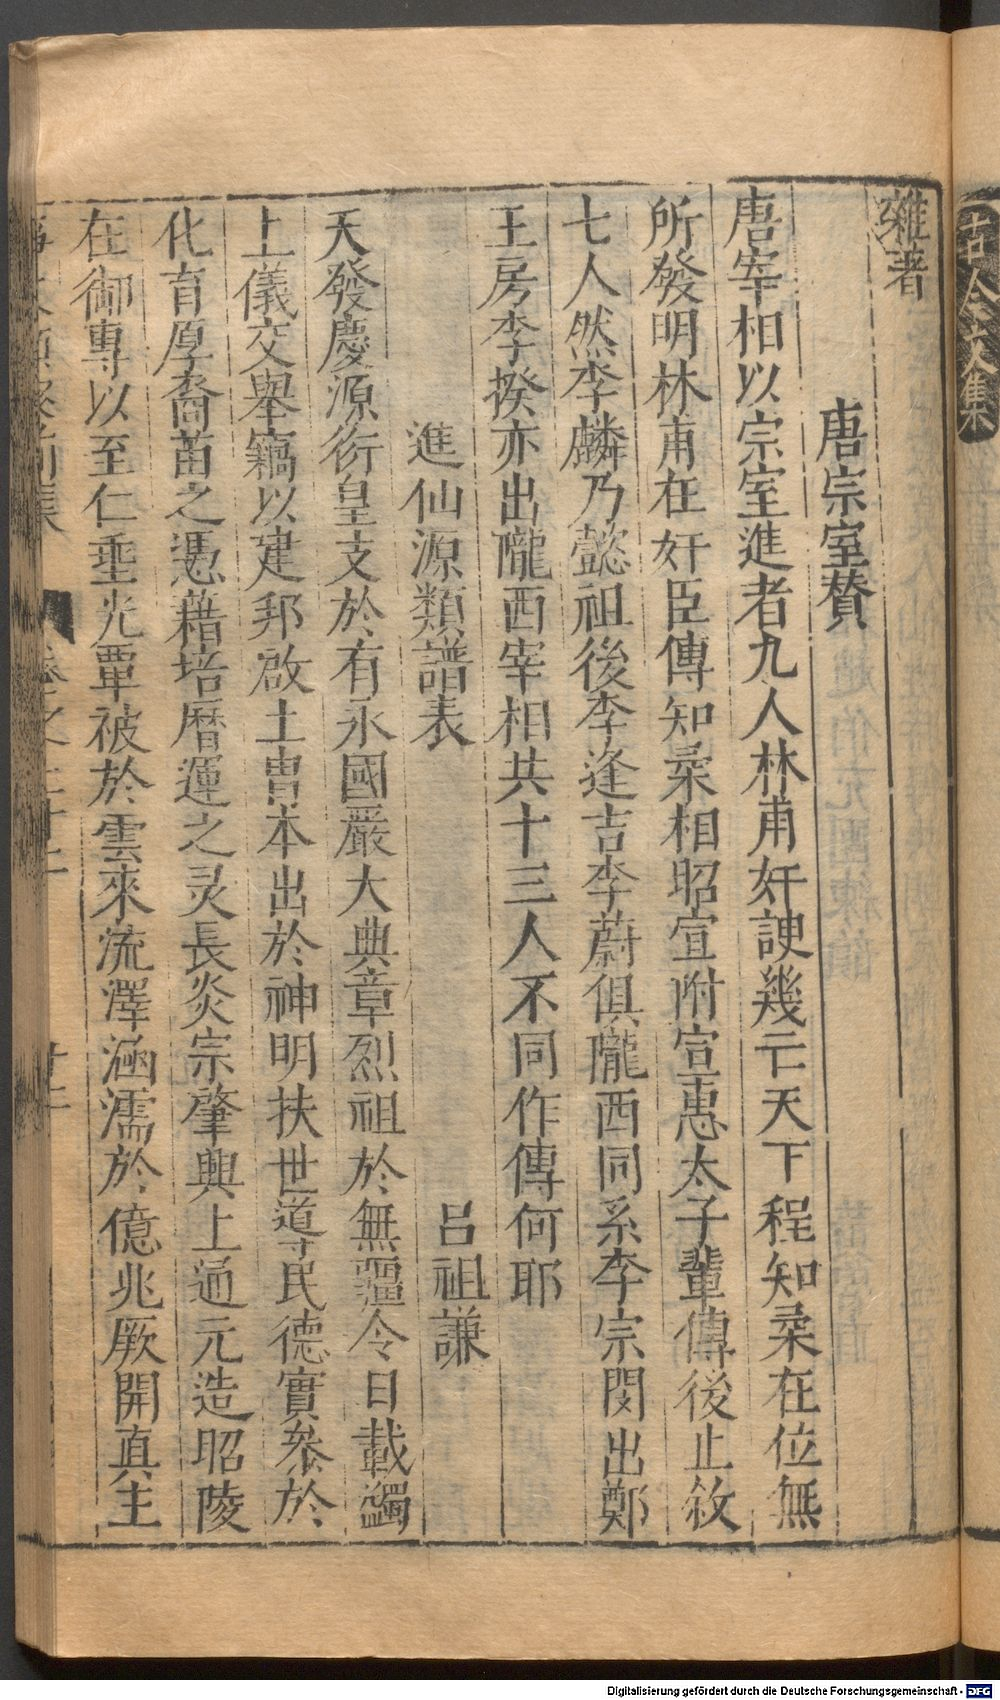 古今文集
雜著
唐宗室賛
唐宰相以宗室進者九人林甫奸諛幾亡天下程知柔在位無
所發明林甫在奸臣傳知柔相昭宣附宣惠太子輩傳後止敘
七人然李麟乃懿祖後李逢吉李蔚俱隴西同系李宗閔出鄭
王房李揆亦出隴西宰相共十三人不同作傳何耶
進仙源類譜表 呂祖謙
天發慶源衍皇支於有永國嚴大典章烈祖於無疆令日載蠲
上儀交舉竊以建邦啟土胄本出於神明扶世導民德實叅於
化育厚裔苗之憑藉培曆運之灵長炎宗肇興上通元造昭陵
在御專以至仁埀光覃被於雲來流澤涵濡於億兆厥開真主
卷之二十二
十二
Digitalisierung gefördert durch die Deutsche Forschungsgemeinschaft - DFG